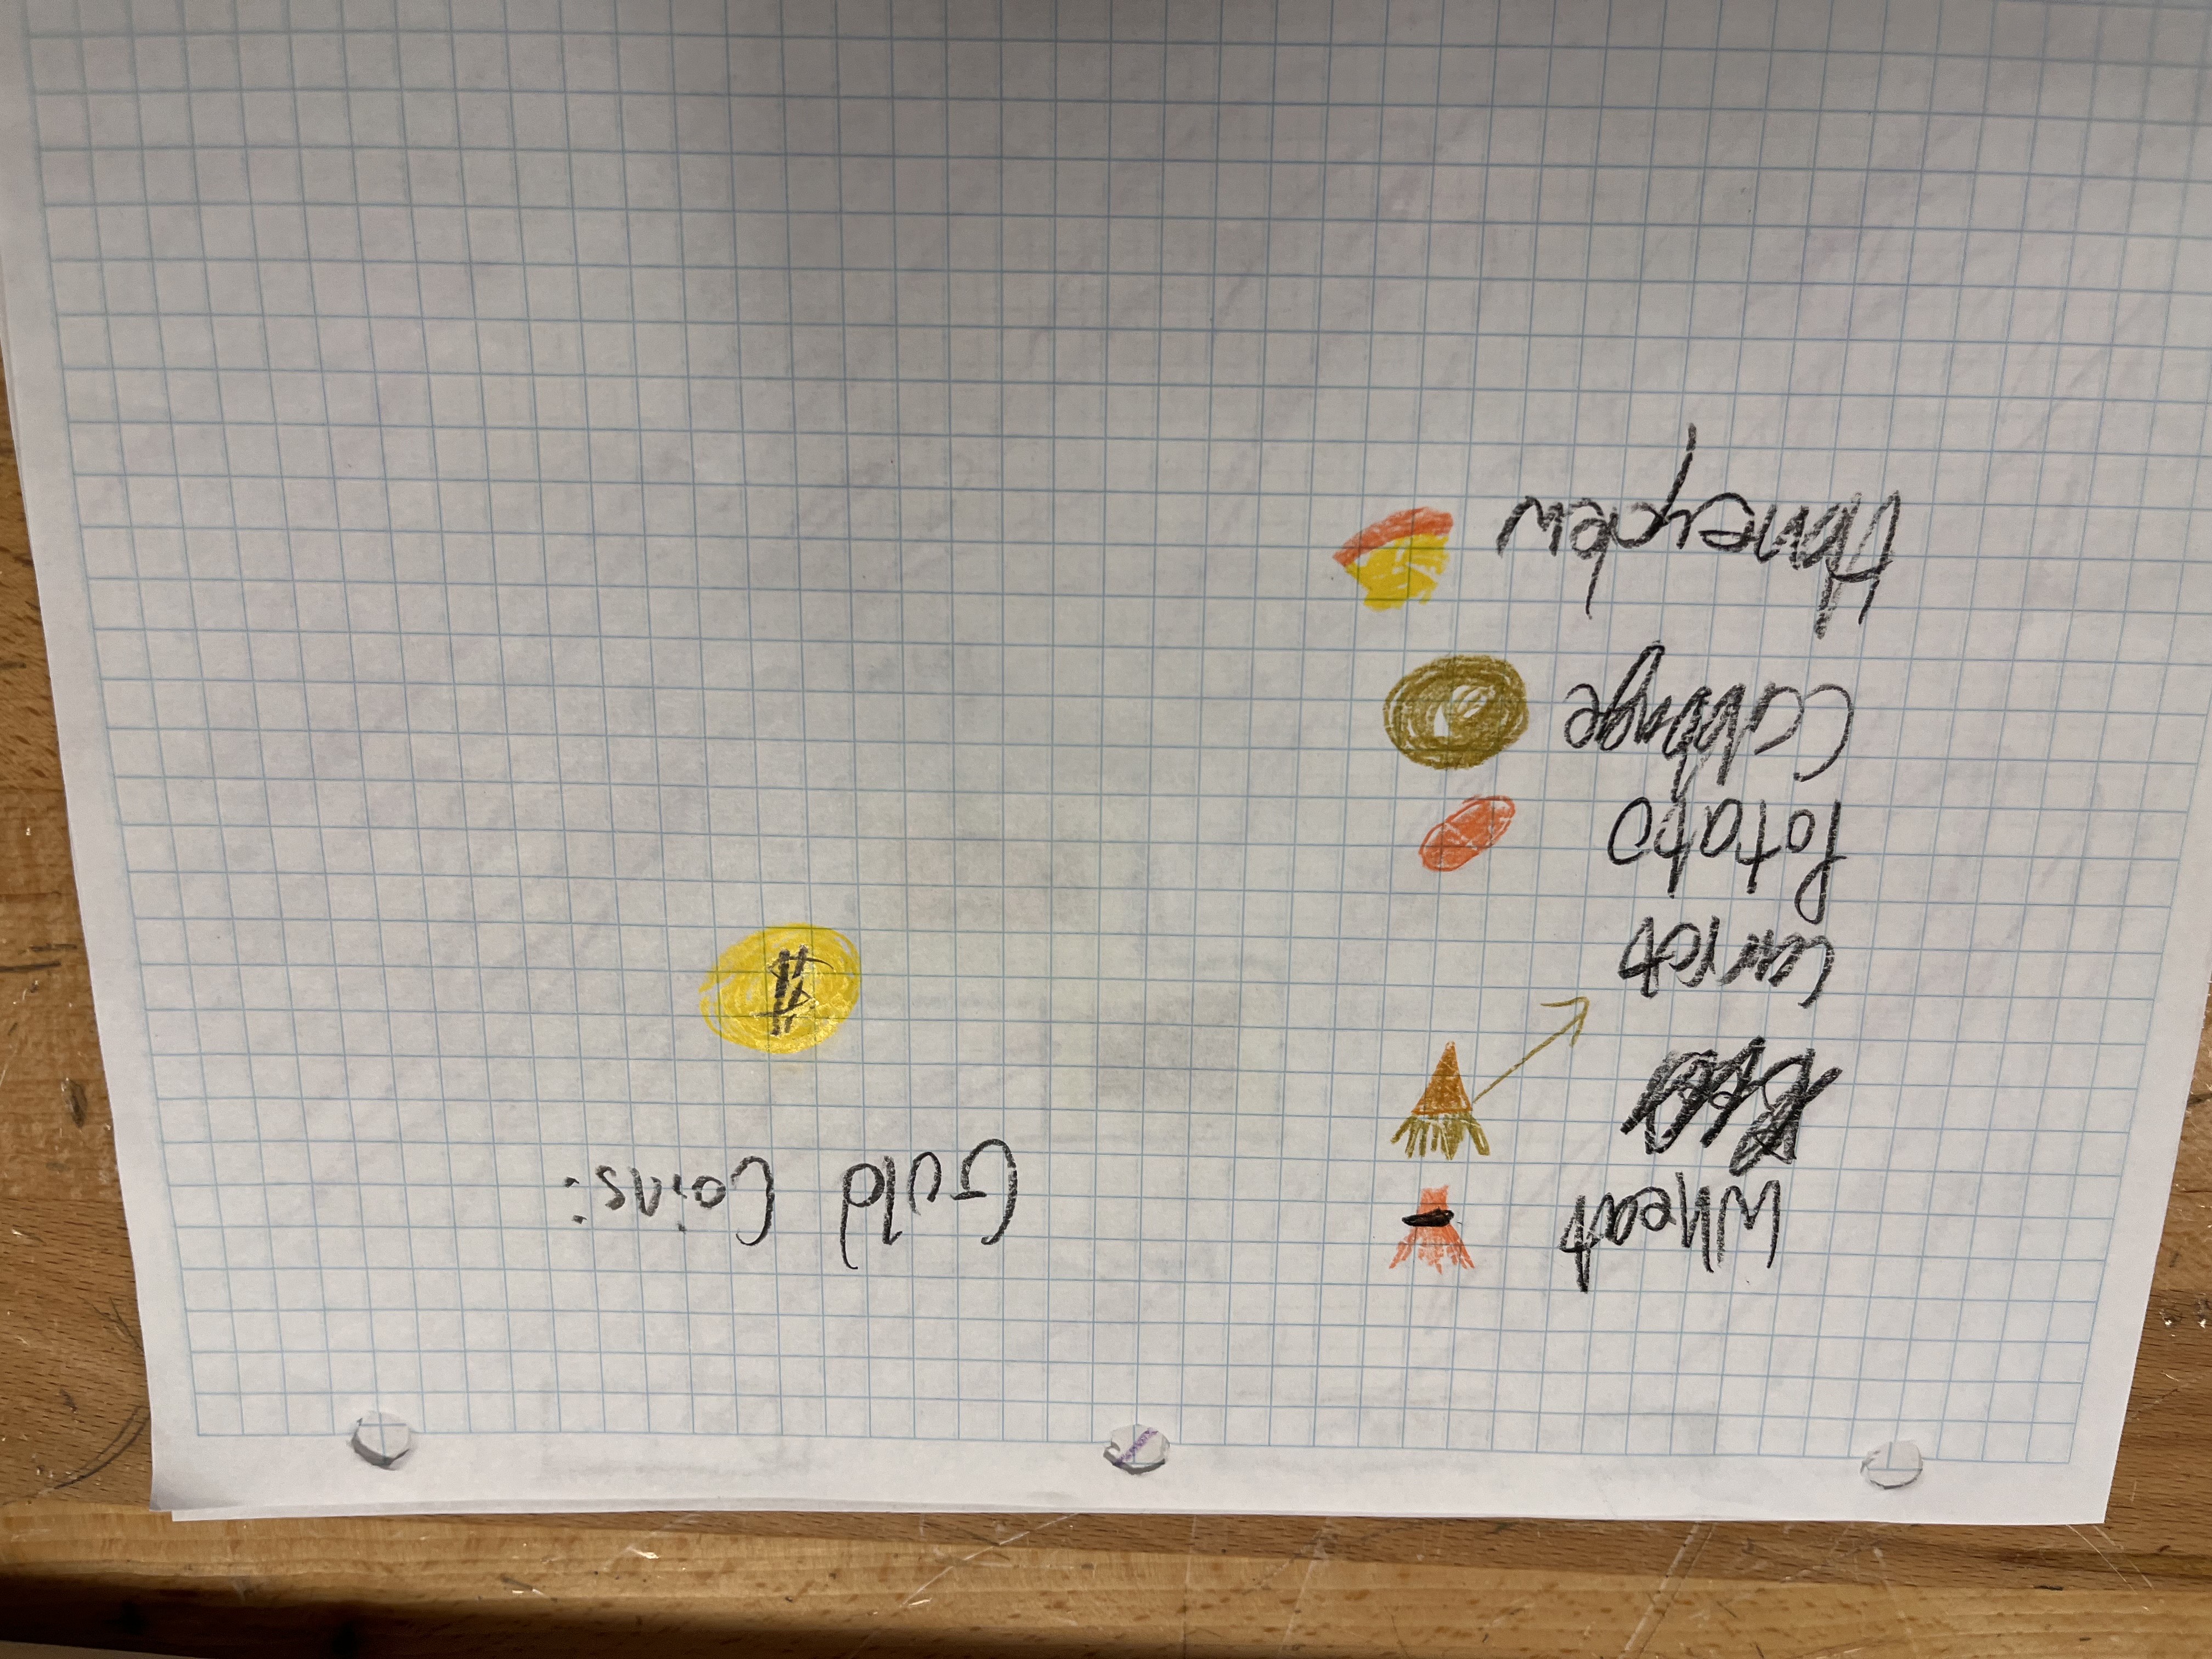 Wheat
Carrot
Potato
Cabbage
Honeydew
Guld Coins:
$